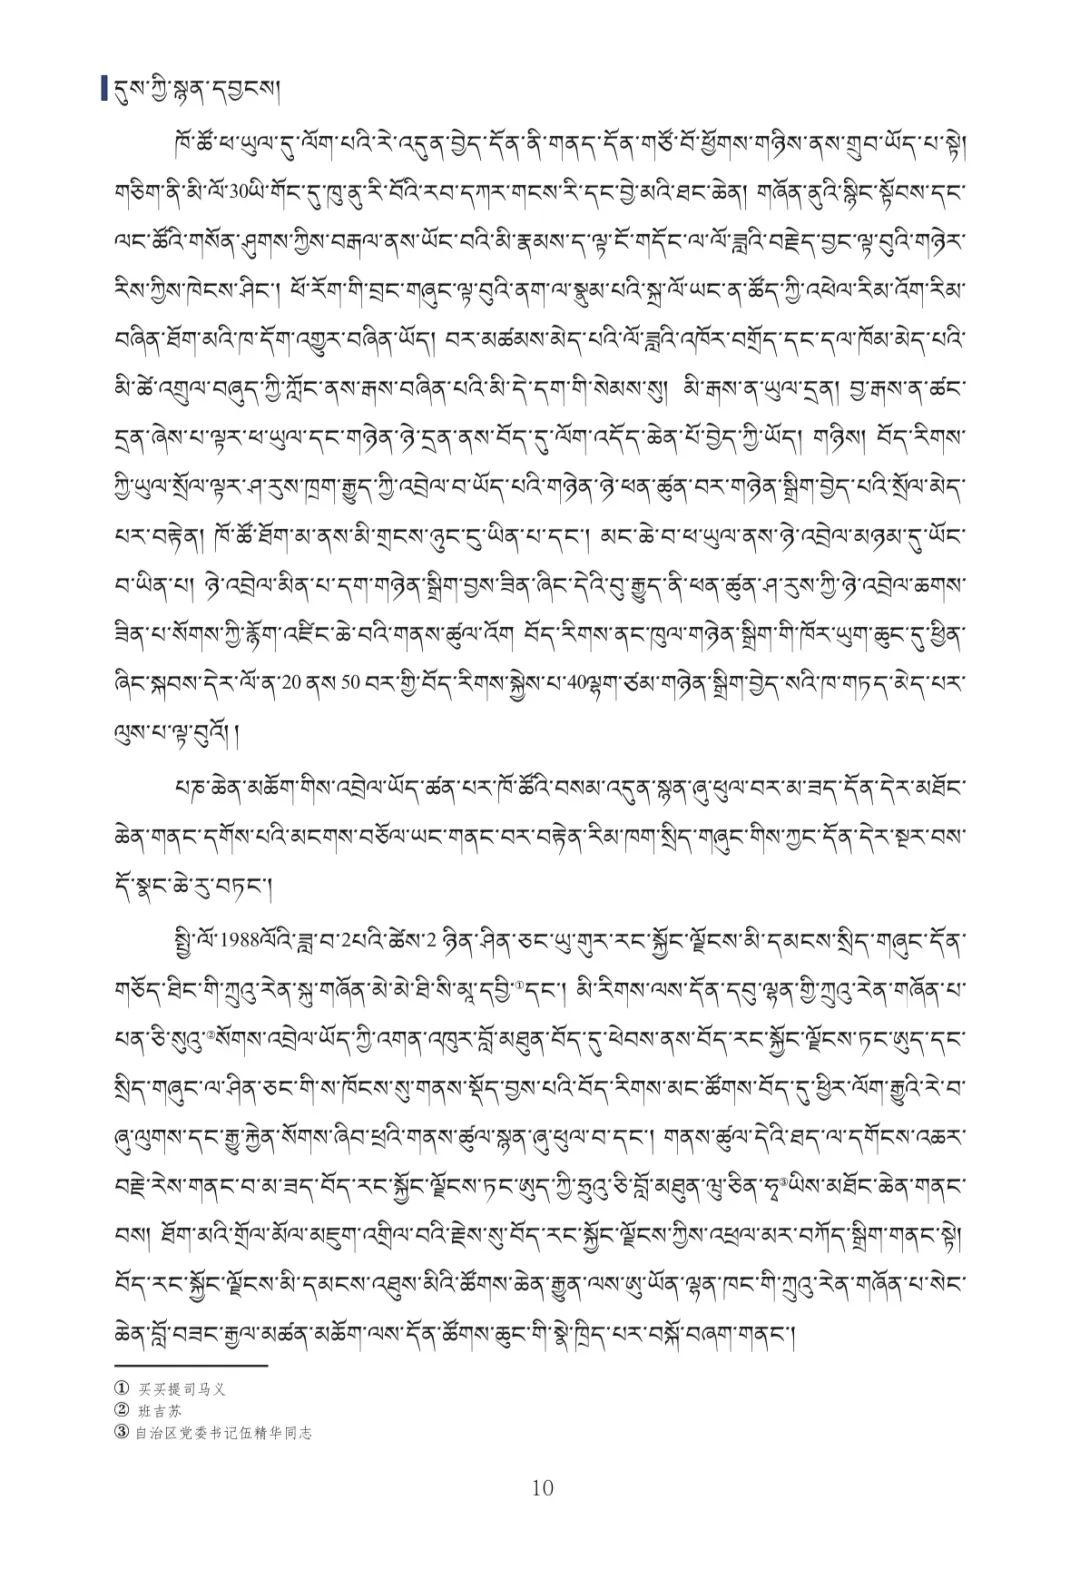 དུས་ཀྱི་སྙན་དབྱངས།
ཁོ་ཚོ་ཕ་ཡུལ་དུ་ལོག་པའི་རེ་འདུན་བྱེད་དོན་ནི་གནད་དོན་གཙོ་བོ་ཕྱོགས་གཉིས་ནས་གྲུབ་ཡོད་པ་སྟེ།
གཅིག་ནི་མི་ལོ་30ཡི་གོང་དུ་ཁུ་ནུ་རི་བོའི་རབ་དཀར་གངས་རི་དང་བྱེ་མའི་ཐང་ཆེན། གཞོན་ནུའི་སྙིང་སྟོབས་དང་
ལང་ཚོའི་གསོན་ཤུགས་ཀྱིས་བརྒལ་ནས་ཡོང་བའི་མི་རྣམས་ད་ལྟ་ངོ་གདོང་ལ་ལོ་ཟླའི་བརྗེད་བྱང་ལྟ་བུའི་གཉེར་
རིས་ཀྱིས་ཁེངས་ཤིང་། ཕོ་རོག་གི་བྲང་གཞུང་ལྟ་བུའི་ནག་ལ་སྣུམ་པའི་སྐྲ་ལོ་ཡང་ན་ཚོད་ཀྱི་འཕེལ་རིམ་འོག་རིམ་
བཞིན་ཐོག་མའི་ཁ་དོག་འགྱུར་བཞིན་ཡོད། བར་མཚམས་མེད་པའི་ལོ་ཟླའི་འཁོར་བགྲོད་དང་དལ་ཁོམ་མེད་པའི་
མི་ཚེ་འགྲུལ་བཞུད་ཀྱི་ཀློང་ནས་རྒས་བཞིན་པའི་མི་དེ་དག་གི་སེམས་སུ། མི་རྒས་ན་ཡུལ་དྲན། བྱ་རྒས་ན་ཚང་
དྲན་ཞེས་པ་ལྟར་ཕ་ཡུལ་དང་གཉེན་ཉེ་དྲན་ནས་བོད་དུ་ལོག་འདོད་ཆེན་པོ་བྱེད་ཀྱི་ཡོད། གཉིས། བོད་རིགས་
ཀྱི་ཡུལ་སྲོལ་ལྟར་ཤ་རུས་ཁྲག་རྒྱུད་ཀྱི་འབྲེལ་བ་ཡོད་པའི་གཉེན་ཉེ་ཕན་ཚུན་བར་གཉེན་སྒྲིག་བྱེད་པའི་སྲོལ་མེད་
པར་བརྟེན། ཁོ་ཚོ་ཐོག་མ་ནས་མི་གྲངས་ཉུང་ངུ་ཡིན་པ་དང་། མང་ཆེ་བ་ཕ་ཡུལ་ནས་ཉེ་འབྲེལ་མཉམ་དུ་ཡོང་
བ་ཡིན་པ། ཉེ་འབྲེལ་མིན་པ་དག་གཉེན་སྒྲིག་བྱས་ཟིན་ཞིང་དེའི་བུ་རྒྱུད་ནི་ཕན་ཚུན་ཤ་རུས་ཀྱི་ཉེ་འབྲེལ་ཆགས་
ཟིན་པ་སོགས་ཀྱི་རྙོག་འཛིང་ཆེ་བའི་གནས་ཚུལ་འོག བོད་རིགས་ནང་ཁུལ་གཉེན་སྒྲིག་གི་ཁོར་ཡུག་ཆུང་དུ་ཕྱིན་
ཞིང་སྐབས་དེར་ལོ་ན་20 ནས 50 བར་གྱི་བོད་རིགས་སྐྱེས་པ་40ལྷག་ཙམ་གཉེན་སྒྲིག་བྱེད་སའི་ཁ་གཏད་མེད་པར་
ལུས་པ་ལྟ་བུའོ།།
པཎ་ཆེན་མཆོག་གིས་འབྲེལ་ཡོད་ཚན་པར་ཁོ་ཚོའི་བསམ་འདུན་སྙན་ཞུ་ཕུལ་བར་མ་ཟད་དོན་དེར་མཐོང་
ཆེན་གནང་དགོས་པའི་མངགས་བཅོལ་ཡང་གནང་བར་བརྟེན་རིམ་ཁག་སྲིད་གཞུང་གིས་ཀྱང་དོན་དེར་སྔར་བས་
དོ་སྣང་ཆེ་རུ་བཏང་།
སྤྱི་ལོ་1988ལོའི་ཟླ་བ་2པའི་ཚེས་2 ཉིན་ཤིན་ཅང་ཡུ་གུར་རང་སྐྱོང་ལྗོངས་མི་དམངས་སྲིད་གཞུང་དོན་
གཅོད་ཐིང་གི་ཀྲུའུ་རེན་སྐུ་གཞོན་མེ་མེ་ཐི་སི་མཱ་དབྱི་①དང་། མི་རིགས་ལས་དོན་དབུ་ལྷན་གྱི་ཀྲུའུ་རེན་གཞོན་པ་
པན་ཅི་སུའུ་②སོགས་འབྲེལ་ཡོད་ཀྱི་འགན་འཁུར་བློ་མཐུན་བོད་དུ་ཕེབས་ནས་བོད་རང་སྐྱོང་ལྗོངས་ཏང་ཨུད་དང་
སྲིད་གཞུང་ལ་ཤིན་ཅང་གི་ས་ཁོངས་སུ་གནས་སྡོད་བྱས་པའི་བོད་རིགས་མང་ཚོགས་བོད་དུ་ཕྱིར་ལོག་རྒྱུའི་རེ་བ་
ཞུ་ལུགས་དང་རྒྱུ་རྐྱེན་སོགས་ཞིབ་ཕྲའི་གནས་ཚུལ་སྙན་ཞུ་ཕུལ་བ་དང་། གནས་ཚུལ་དེའི་ཐད་ལ་དགོངས་འཆར་
བརྗེ་རེས་གནང་བ་མ་ཟད་བོད་རང་སྐྱོང་ལྗོངས་ཏང་ཨུད་ཀྱི་ཧྲུའུ་ཅི་བློ་མཐུན་ཝུ་ཅིན་ཧྭ་③ཡིས་མཐོང་ཆེན་གནང་
བས། ཐོག་མའི་གྲོལ་མོལ་མཇུག་འགྲིལ་བའི་རྗེས་སུ་བོད་རང་སྐྱོང་ལྗོངས་ཀྱིས་འཕྲལ་མར་བཀོད་སྒྲིག་གནང་སྟེ།
བོད་རང་སྐྱོང་ལྗོངས་མི་དམངས་འཐུས་མིའི་ཚོགས་ཆེན་རྒྱུན་ལས་ཨུ་ཡོན་ལྷན་ཁང་གི་ཀྲུའུ་རེན་གཞོན་པ་སེང་
ཆེན་བློ་བཟང་རྒྱལ་མཚན་མཆོག་ལས་དོན་ཚོགས་ཆུང་གི་སྣེ་ཁྲིད་པར་བསྐོ་བཞག་གནང་།
① 买买提司马义
② 班吉苏
③ 自治区党委书记伍精华同志
10